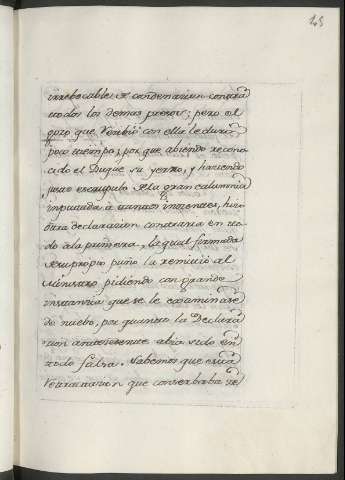 145
irrebocable, y condenarian contra
todos los demas presos; pero el
gozo que recibió con ella le duró
poco tiempo; por que abiendo recono
cido el Duque su yerro, y haciendo
justo escrupulo de la gran calumnia
imputada à tantos inocentes, hizo
otra declaracion contraria en to
do à la primera, la qual firmada
de su propio puño la remitió al
Ministro pidiendo con grande
instancia que se le examinase
de nuebo, por quanto la Declara
cion antecedente abia sido en
todo falsa. Sabemos que esta
retractacion que conserbaba el